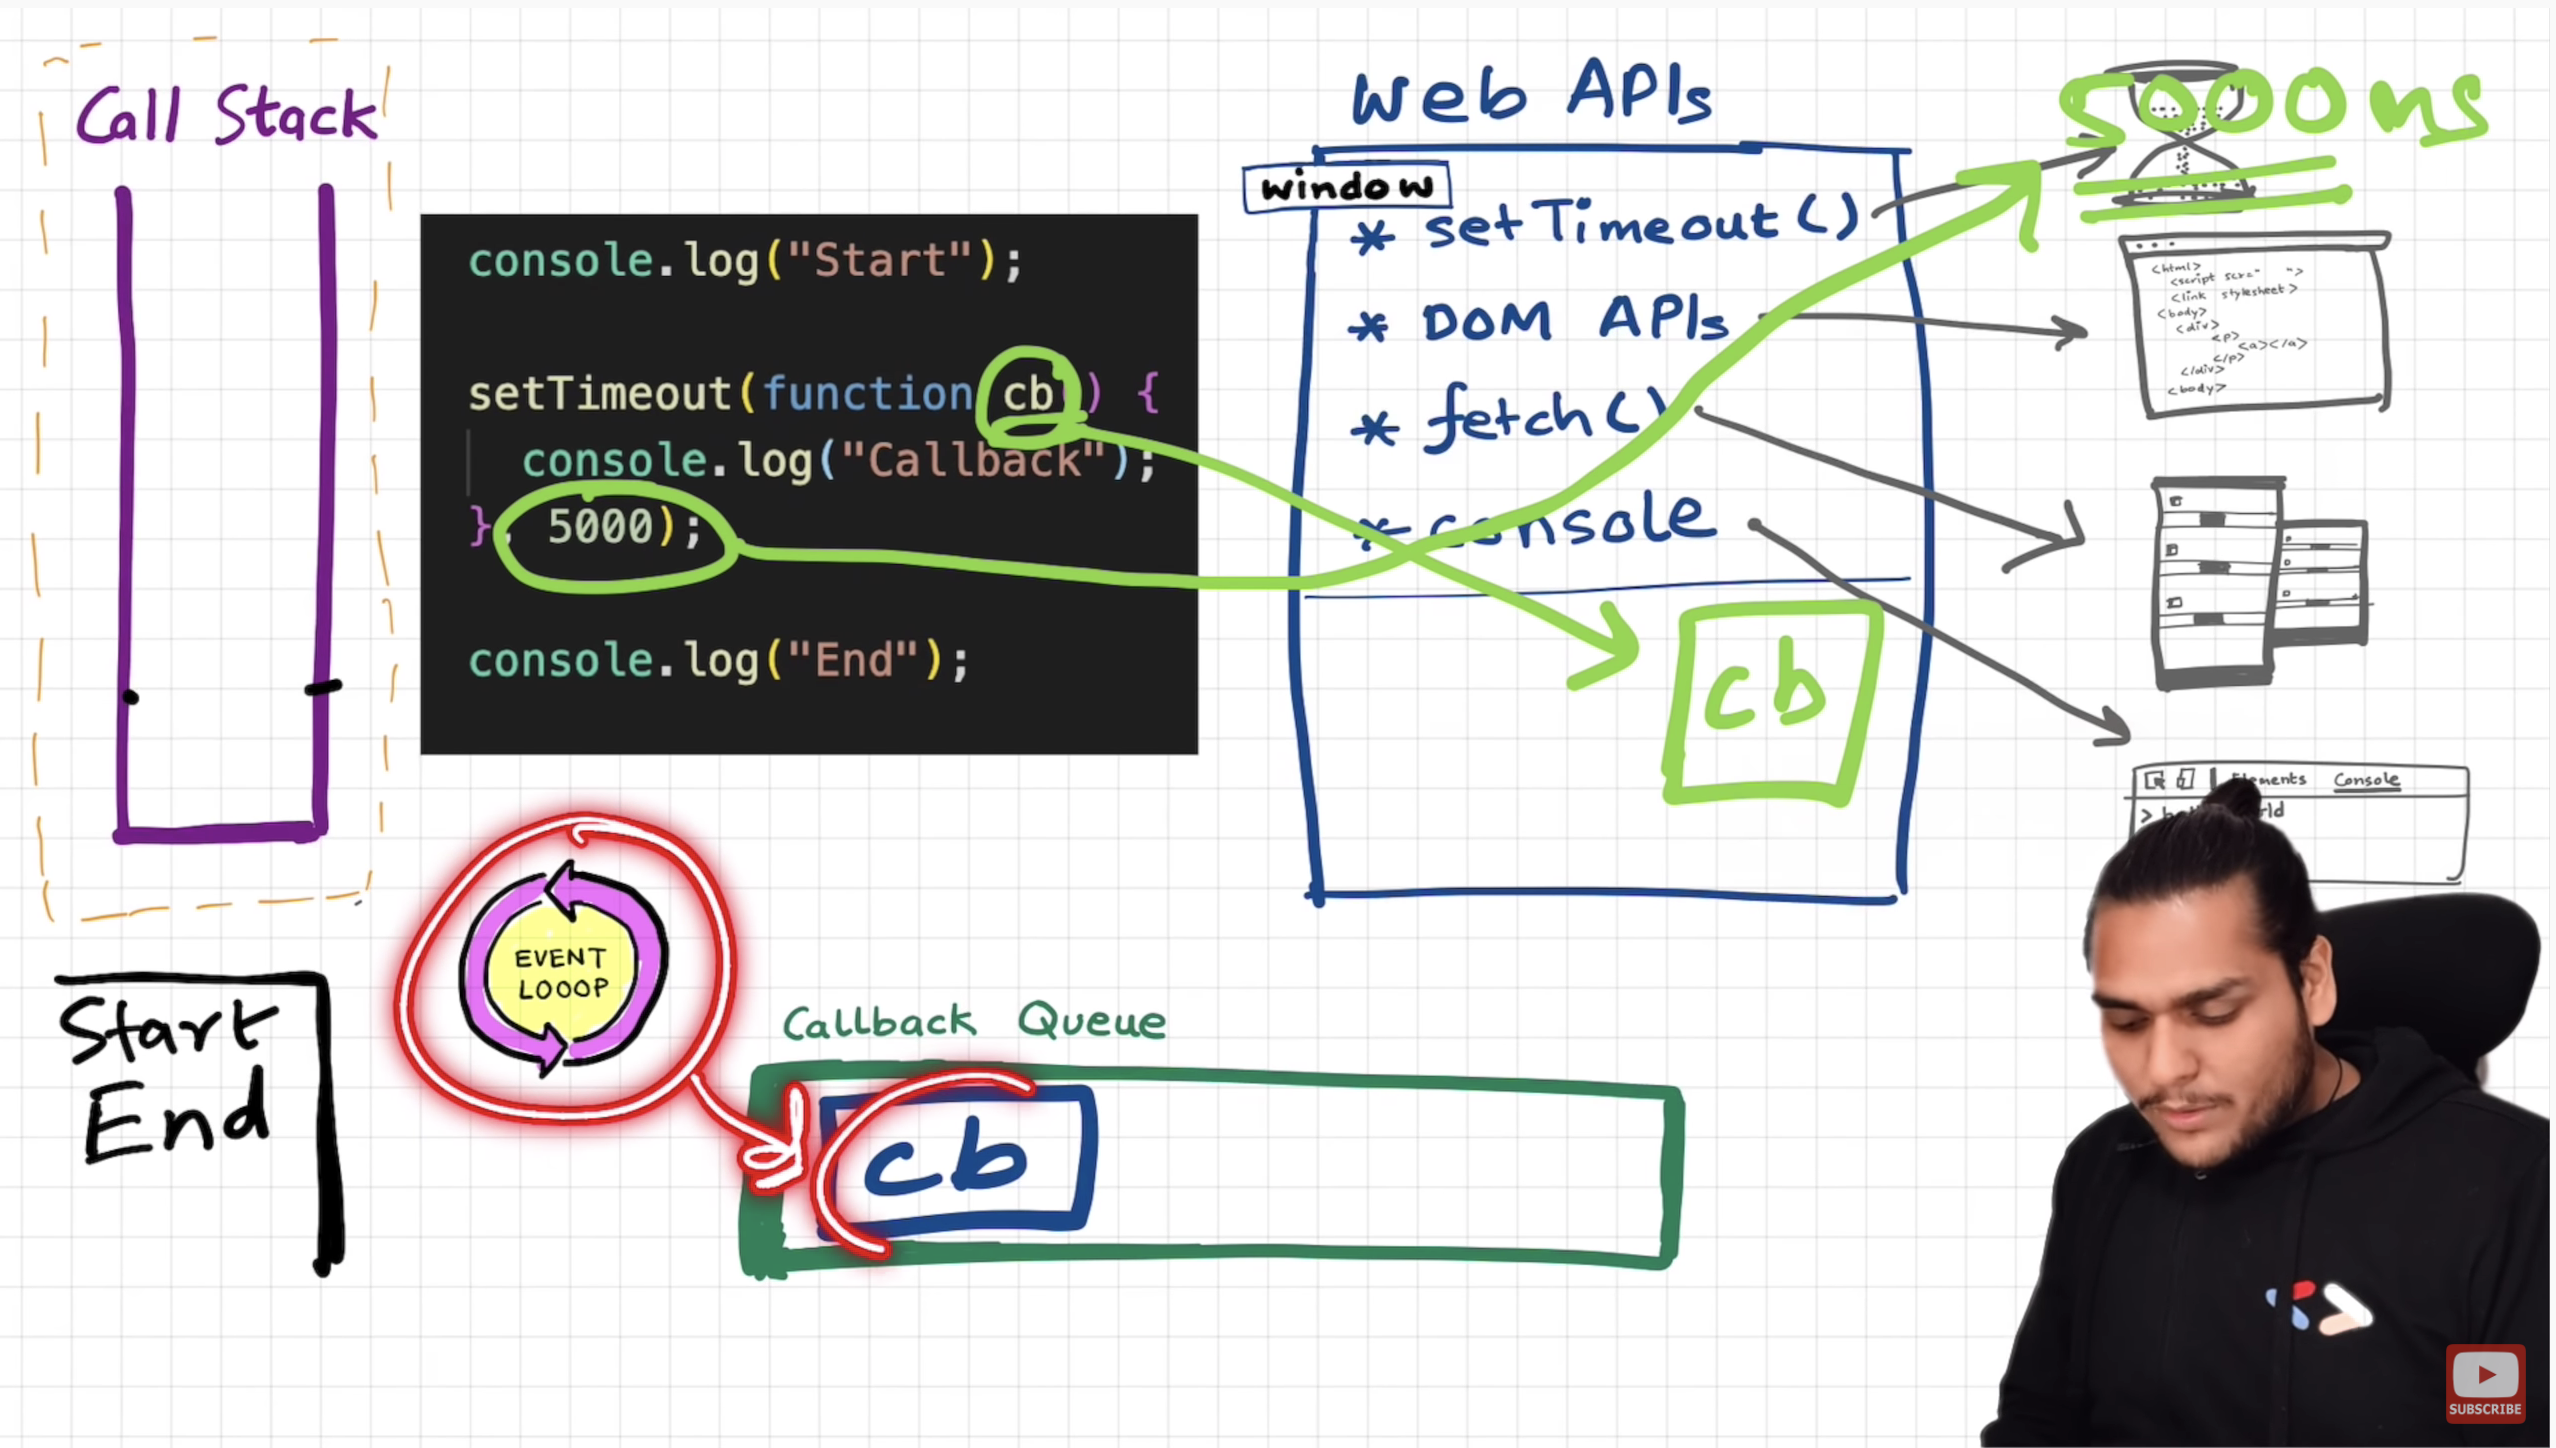 Call Stack
console.log("Start");
setTimeout(function cb() {
console.log("Callback");
}, 5000);
console.log("End");
Web APIs
window
* setTimeout()
* DOM APIs
* fetch()
* console
cb
5000ms
<html>
<script scr=" ">
<link stylesheet>
<body>
<div>
<p>
<a></a>
</p>
</div>
<body>
Console
>
EVENT
LOOOP
Start
End
Callback Queue
cb
SUBSCRIBE